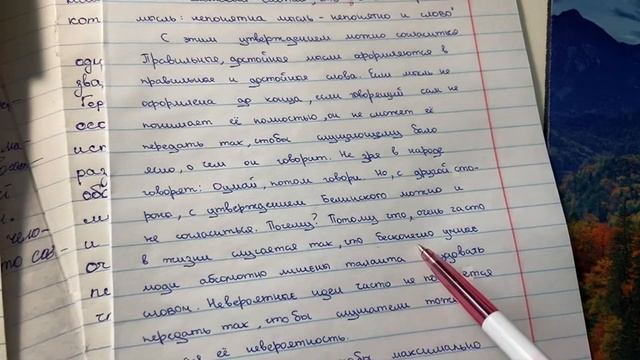 мысль: непонятна мысль - непонятно и слово"
С этим утверждением можно согласиться
Правильные, достойные мысли оформляются в
правильные и достойные слова. Если мысль не
оформлена до конца, если говорящий сам не
понимает её полностью, он не сможет её
передать так, чтобы слушающему было
ясно, о чем он говорит. Не зря в народе
говорят: Думай, потом говори. Но, с другой сто-
роны, с утверждением Белинского можно и
не согласиться. Почему? Потому что, очень часто
в жизни случается так, что бесконечно умные
люди абсолютно лишены таланта
словом. Невероятные идеи часто не
передать так, чтобы слушатели
её невероятность.
максимально
кот
одн
два
Гер
осо
исп
раз
обр
и
оч
пе